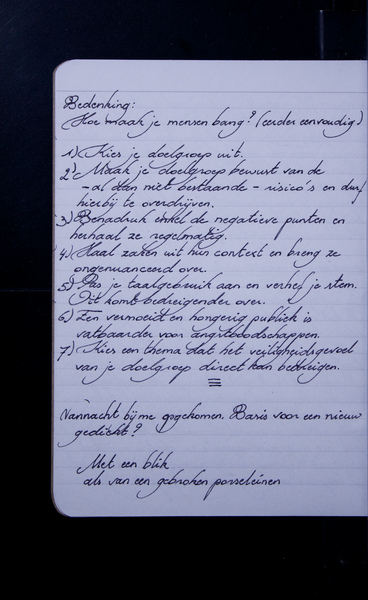 Bedenking:
Hoe maak je mensen bang? (eerder eenvoudig)
1) Kies je doelgroep uit.
2) Maak je doelgroep bewust van de
- al dan niet bestaande - risico's en durf
hierbij te overdrijven.
3) Benadruk enkel de negatieve punten en
herhaal ze regelmatig.
4) Haal zaken uit hun context en breng ze
ongenuanceerd over.
5) Pas je taalgebruik aan en verhef je stem.
Dit komt bedreigender over.
6) Een vermoeid en hongerig publiek is
vatbaarder voor angstboodschappen.
7) Kies een thema dat het veiligheidsgevoel
van je doelgroep direct kan bedreigen.
Vannacht bij me opgekomen. Basis voor een nieuw
gedicht?
Met een blik
als van een gebroken porseleinen